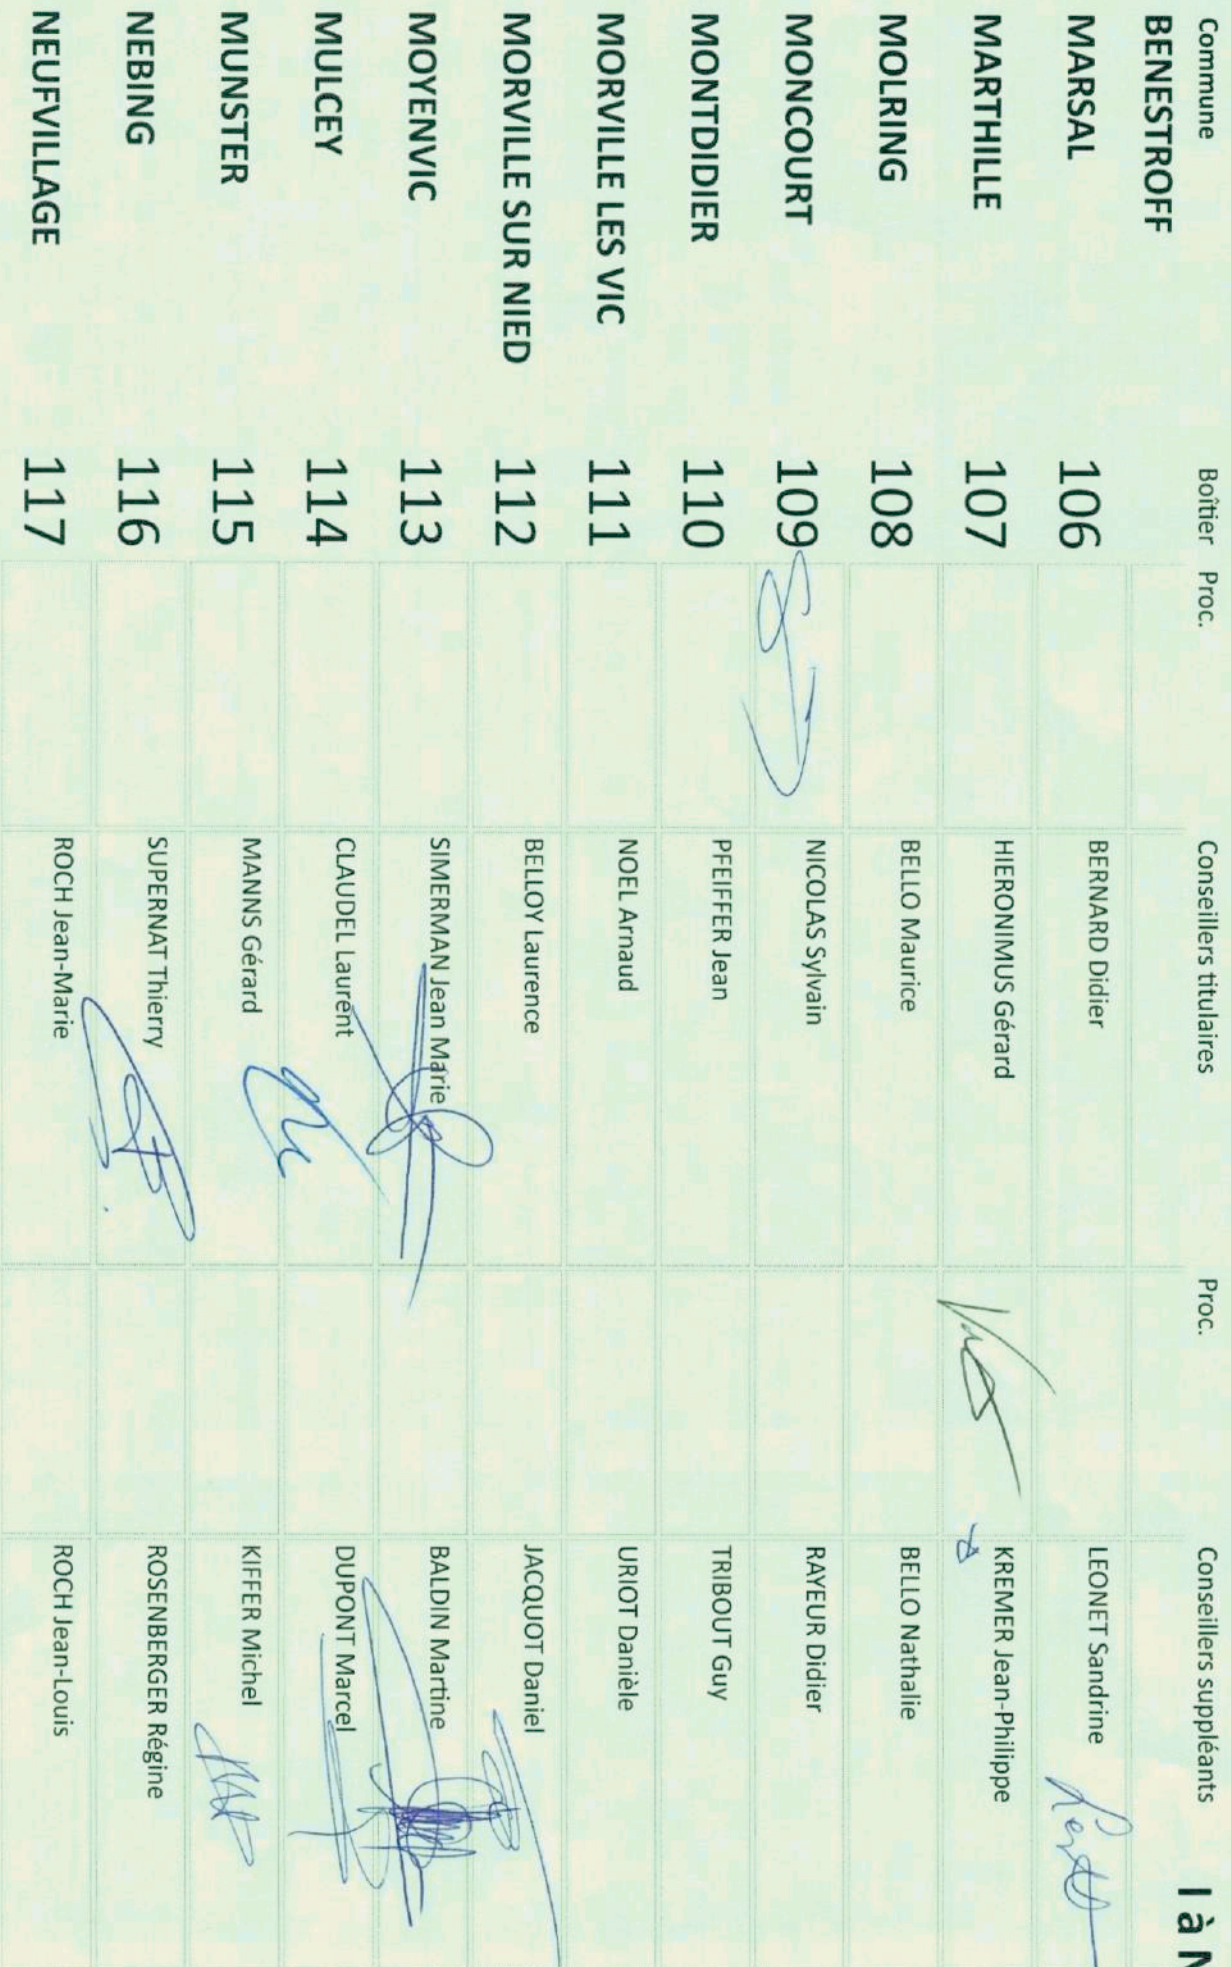 I à N
Commune Boîtier Proc. Conseillers titulaires Proc. Conseillers suppléants
BENESTROFF
MARSAL 106 BERNARD Didier LEONET Sandrine
MARTHILLE 107 HIERONIMUS Gérard KREMER Jean-Philippe
MOLRING 108 BELLO Maurice BELLO Nathalie
MONCOURT 109 NICOLAS Sylvain RAYEUR Didier
MONTDIDIER 110 PFEIFFER Jean TRIBOUT Guy
MORVILLE LES VIC 111 NOEL Arnaud URIOT Danièle
MORVILLE SUR NIED 112 BELLOY Laurence JACQUOT Daniel
MOYENVIC 113 SIMERMAN Jean Marie BALDIN Martine
MULCEY 114 CLAUDEL Laurent DUPONT Marcel
MUNSTER 115 MANNS Gérard KIFFER Michel
NEBING 116 SUPERNAT Thierry ROSENBERGER Régine
NEUFVILLAGE 117 ROCH Jean-Marie ROCH Jean-Louis